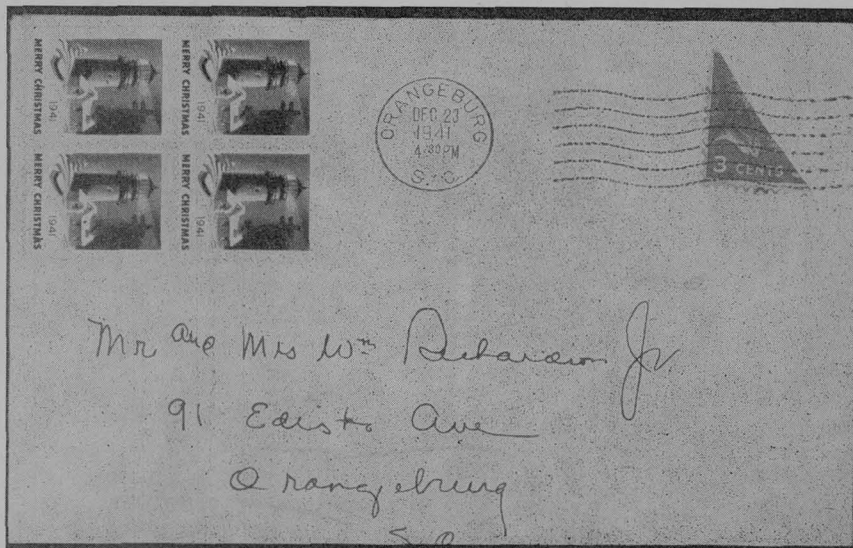 MERRY CHRISTMAS
1941
MERRY CHRISTMAS
1941
MERRY CHRISTMAS
1941
MERRY CHRISTMAS
1941
ORANGEBURG
DEC 23
1941
4-30 PM
S. C.
3 CENTS
Mr and Mrs Wm Richardson Jr
91 Edisto Ave
Orangeburg
S.C.